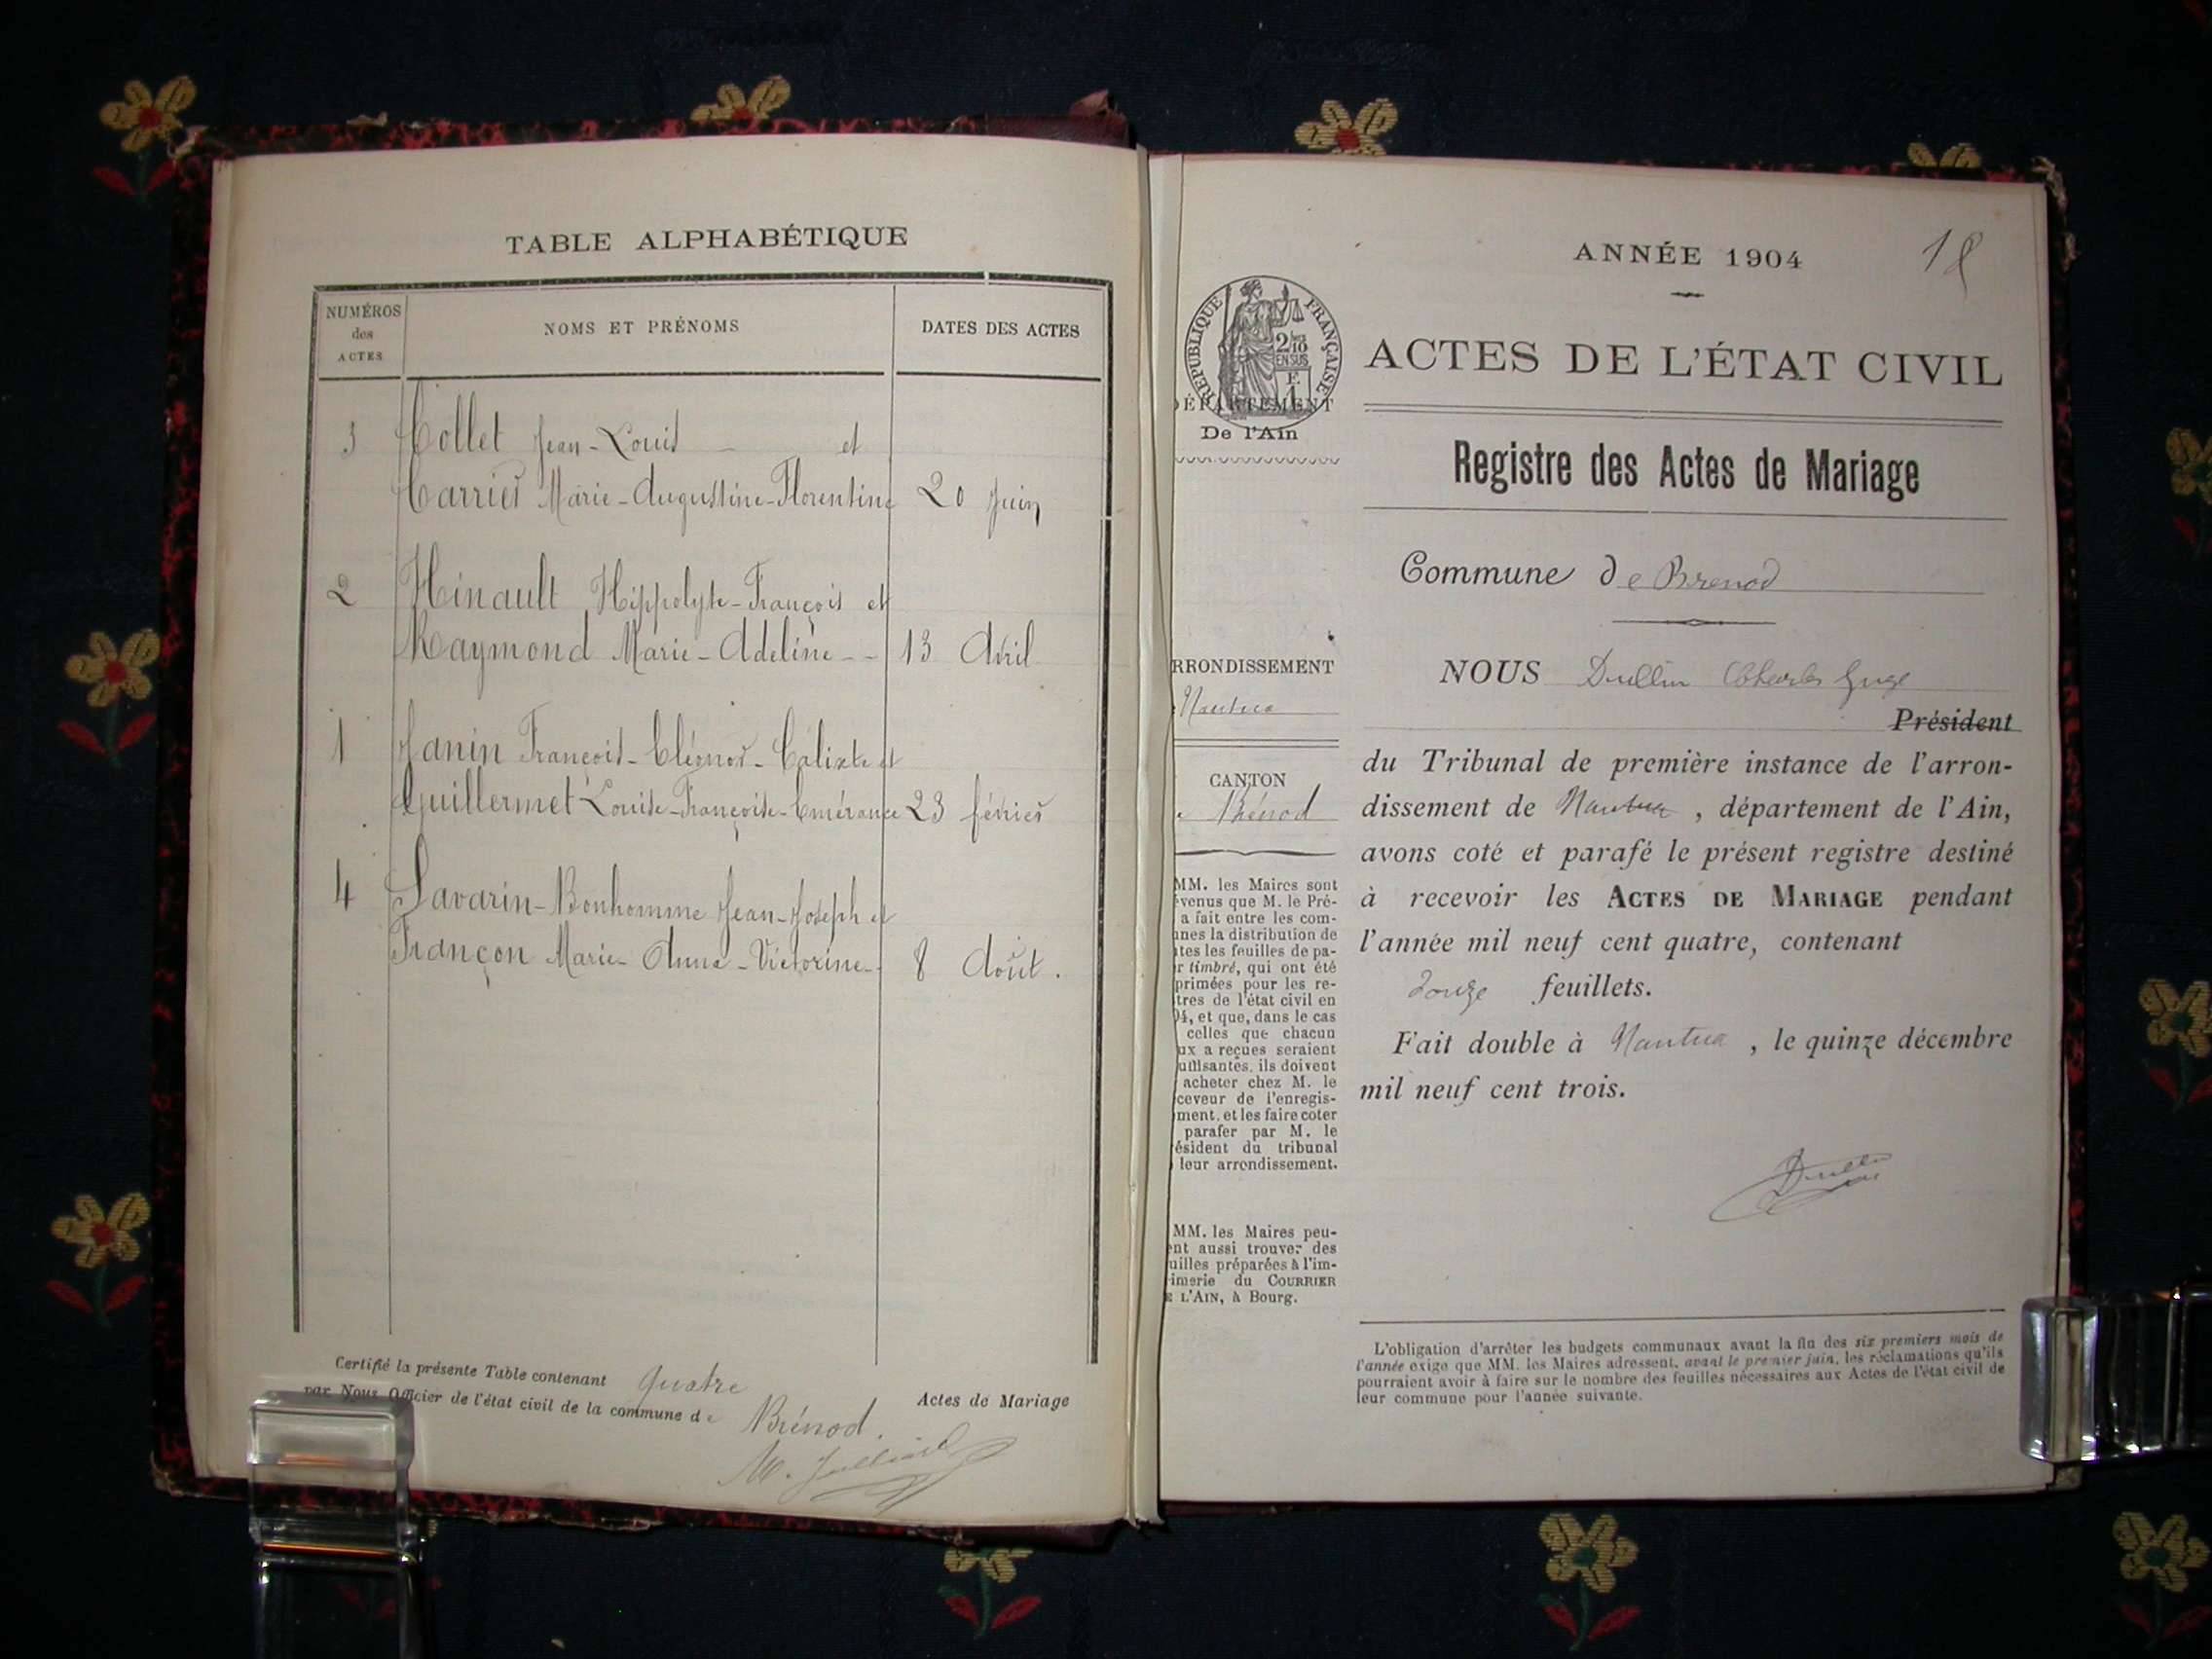 TABLE ALPHABÉTIQUE
NUMÉROS
des
ACTES
NOMS ET PRÉNOMS
DATES DES ACTES
3 Collet Jean-Louis - et
Carrier Marie-Augustine-Florentine 20 Juin
2 Hinault Hippolyte-François et
Raymond Marie-Adeline -- 13 Avril
1 Janin François-Cléonor-Calixte et
Guillermet Louise-Françoise-Émérance 23 février
4 Savarin-Bonhomme Jean-Joseph et
Françon Marie-Anna-Victorine- 8 Août.
Certifié la présente Table contenant quatre Actes de Mariage
par Nous Officier de l'état civil de la commune de Brénod.
M. Julliard
18
ANNÉE 1904
ACTES DE L'ÉTAT CIVIL
Registre des Actes de Mariage
Commune de Brenod
NOUS Dullin Charles Juge
Président
du Tribunal de première instance de l'arron-
dissement de Nantua, département de l'Ain,
avons coté et parafé le présent registre destiné
à recevoir les ACTES DE MARIAGE pendant
l'année mil neuf cent quatre, contenant
douze feuillets.
Fait double à Nantua, le quinze décembre
mil neuf cent trois.
Dullin
L'obligation d'arrêter les budgets communaux avant la fin des six premiers mois de
l'année exige que MM. les Maires adressent, avant le premier juin, les réclamations qu'ils
pourraient avoir à faire sur le nombre des feuilles nécessaires aux Actes de l'état civil de
leur commune pour l'année suivante.
RÉPUBLIQUE FRANÇAISE
2/10
EN SUS
F.
1
DÉPARTEMENT
De l'Ain
RRONDISSEMENT
Nantua
CANTON
Brénod
MM. les Maires sont
évenus que M. le Pré-
a fait entre les com-
unes la distribution de
utes les feuilles de pa-
r timbré, qui ont été
primées pour les re-
tres de l'état civil en
04, et que, dans le cas
celles que chacun
ux a reçues seraient
uffisantes, ils doivent
acheter chez M. le
ceveur de l'enregis-
ment, et les faire coter
parafer par M. le
ésident du tribunal
leur arrondissement.
MM. les Maires peu-
ent aussi trouver des
uilles préparées à l'im-
imerie du COURRIER
E L'AIN, à Bourg.